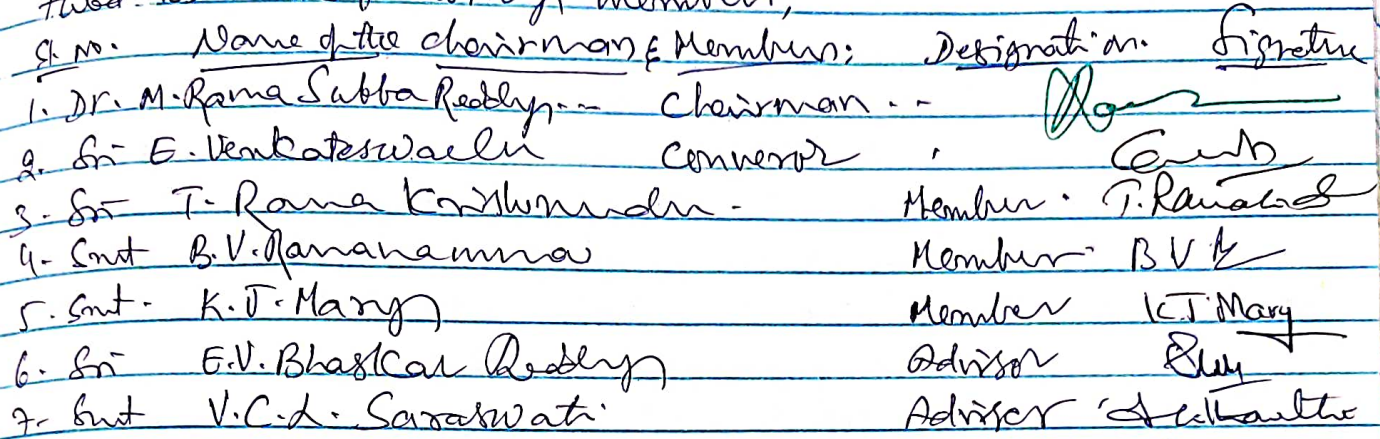 Member,
Sl. No. Name of the chairman & Members: Designation. Signature
1. Dr. M. Rama Subba Reddy, -- Chairman . --
2. Sri E. Venkateswarlu Convenor .
3. Sri T. Rama Krishnudu - Member .
4. Smt B. V. Ramanamma Member B V R
5. Smt. K. J. Mary Member K J Mary
6. Sri E.V. Bhaskar Reddy Advisor
7. Smt V. C. L. Saraswati Adviser